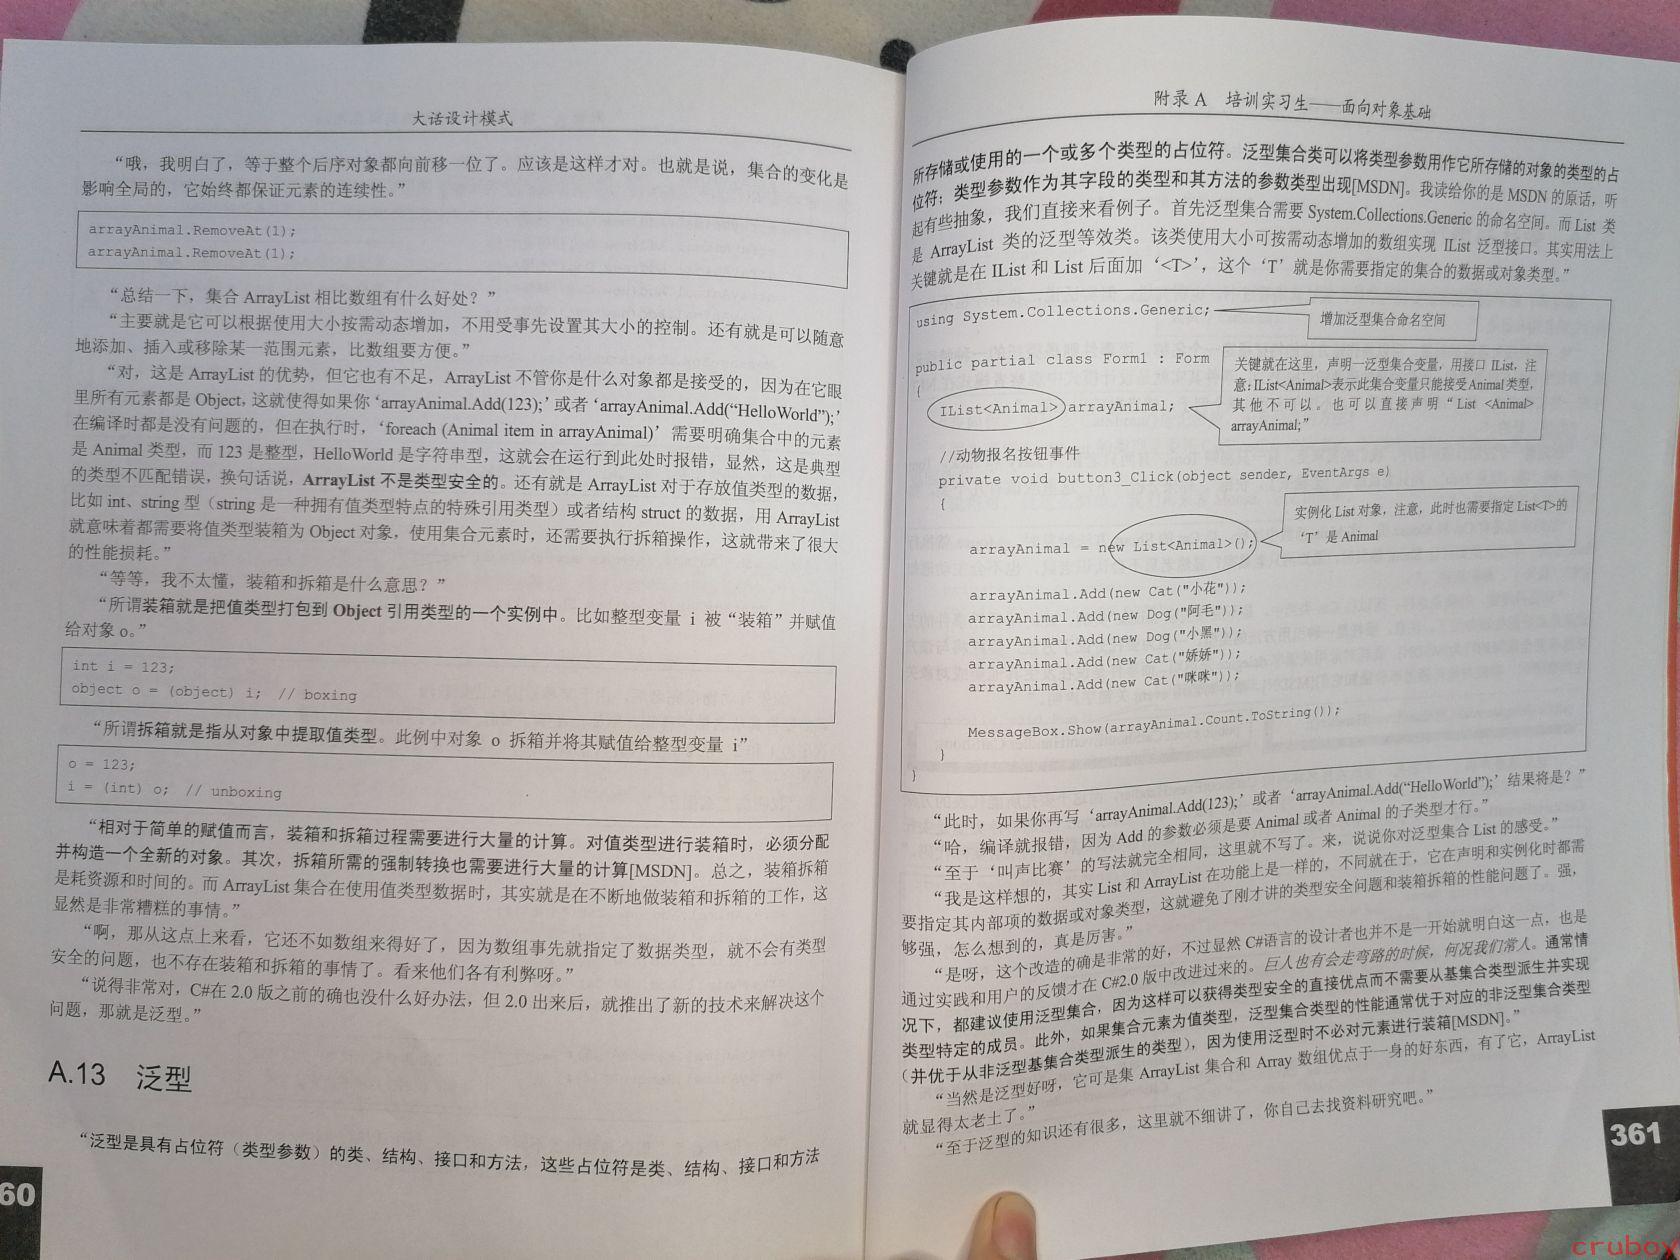 大话设计模式
“哦，我明白了，等于整个后序对象都向前移一位了。应该是这样才对。也就是说，集合的变化是
影响全局的，它始终都保证元素的连续性。”
arrayAnimal.RemoveAt(1);
arrayAnimal.RemoveAt(1);
“总结一下，集合 ArrayList 相比数组有什么好处？”
“主要就是它可以根据使用大小按需动态增加，不用受事先设置其大小的控制。还有就是可以随意
地添加、插入或移除某一范围元素，比数组要方便。”
“对，这是 ArrayList 的优势，但它也有不足，ArrayList 不管你是什么对象都是接受的，因为在它眼
里所有元素都是 Object，这就使得如果你‘arrayAnimal.Add(123);’或者‘arrayAnimal.Add(“HelloWorld”);’
在编译时都是没有问题的，但在执行时，‘foreach (Animal item in arrayAnimal)’需要明确集合中的元素
是 Animal 类型，而 123 是整型，HelloWorld 是字符串型，这就会在运行到此处时报错，显然，这是典型
的类型不匹配错误，换句话说，ArrayList 不是类型安全的。还有就是 ArrayList 对于存放值类型的数据，
比如 int、string 型（string 是一种拥有值类型特点的特殊引用类型）或者结构 struct 的数据，用 ArrayList
就意味着都需要将值类型装箱为 Object 对象，使用集合元素时，还需要执行拆箱操作，这就带来了很大
的性能损耗。”
“等等，我不太懂，装箱和拆箱是什么意思？”
“所谓装箱就是把值类型打包到 Object 引用类型的一个实例中。比如整型变量 i 被“装箱”并赋值
给对象 o。”
int i = 123;
object o = (object) i;  // boxing
“所谓拆箱就是指从对象中提取值类型。此例中对象 o 拆箱并将其赋值给整型变量 i”
o = 123;
i = (int) o;  // unboxing
“相对于简单的赋值而言，装箱和拆箱过程需要进行大量的计算。对值类型进行装箱时，必须分配
并构造一个全新的对象。其次，拆箱所需的强制转换也需要进行大量的计算[MSDN]。总之，装箱拆箱
是耗资源和时间的。而 ArrayList 集合在使用值类型数据时，其实就是在不断地做装箱和拆箱的工作，这
显然是非常糟糕的事情。”
“啊，那从这点上来看，它还不如数组来得好了，因为数组事先就指定了数据类型，就不会有类型
安全的问题，也不存在装箱和拆箱的事情了。看来他们各有利弊呀。”
“说得非常对，C#在 2.0 版之前的确也没什么好办法，但 2.0 出来后，就推出了新的技术来解决这个
问题，那就是泛型。”
A.13 泛型
“泛型是具有占位符（类型参数）的类、结构、接口和方法，这些占位符是类、结构、接口和方法
60
附录 A 培训实习生——面向对象基础
所存储或使用的一个或多个类型的占位符。泛型集合类可以将类型参数用作它所存储的对象的类型的占
位符；类型参数作为其字段的类型和其方法的参数类型出现[MSDN]。我读给你的是 MSDN 的原话，听
起有些抽象，我们直接来看例子。首先泛型集合需要 System.Collections.Generic 的命名空间。而 List 类
是 ArrayList 类的泛型等效类。该类使用大小可按需动态增加的数组实现 IList 泛型接口。其实用法上
关键就是在 IList 和 List 后面加‘<T>’，这个‘T’就是你需要指定的集合的数据或对象类型。”
using System.Collections.Generic;
增加泛型集合命名空间
public partial class Form1 : Form
{
IList<Animal> arrayAnimal;
关键就在这里，声明一泛型集合变量，用接口 IList，注
意：IList<Animal>表示此集合变量只能接受Animal 类型，
其他不可以。也可以直接声明“List <Animal>
arrayAnimal;”
//动物报名按钮事件
private void button3_Click(object sender, EventArgs e)
{
arrayAnimal = new List<Animal>();
实例化 List 对象，注意，此时也需要指定 List<T>的
‘T’是 Animal
arrayAnimal.Add(new Cat("小花"));
arrayAnimal.Add(new Dog("阿毛"));
arrayAnimal.Add(new Dog("小黑"));
arrayAnimal.Add(new Cat("娇娇"));
arrayAnimal.Add(new Cat("咪咪"));
MessageBox.Show(arrayAnimal.Count.ToString());
}
}
“此时，如果你再写‘arrayAnimal.Add(123);’或者‘arrayAnimal.Add(“HelloWorld”);’结果将是？”
“哈，编译就报错，因为 Add 的参数必须是要 Animal 或者 Animal 的子类型才行。”
“至于‘叫声比赛’的写法就完全相同，这里就不写了。来，说说你对泛型集合 List 的感受。”
“我是这样想的，其实 List 和 ArrayList 在功能上是一样的，不同就在于，它在声明和实例化时都需
要指定其内部项的数据或对象类型，这就避免了刚才讲的类型安全问题和装箱拆箱的性能问题了。强，
够强，怎么想到的，真是厉害。”
“是呀，这个改造的确是非常的好，不过显然 C#语言的设计者也并不是一开始就明白这一点，也是
通过实践和用户的反馈才在 C#2.0 版中改进过来的。巨人也有会走弯路的时候，何况我们常人。通常情
况下，都建议使用泛型集合，因为这样可以获得类型安全的直接优点而不需要从基集合类型派生并实现
类型特定的成员。此外，如果集合元素为值类型，泛型集合类型的性能通常优于对应的非泛型集合类型
（并优于从非泛型基集合类型派生的类型），因为使用泛型时不必对元素进行装箱[MSDN]。”
“当然是泛型好呀，它可是集 ArrayList 集合和 Array 数组优点于一身的好东西，有了它，ArrayList
就显得太老土了。”
“至于泛型的知识还有很多，这里就不细讲了，你自己去找资料研究吧。”
361
crubox